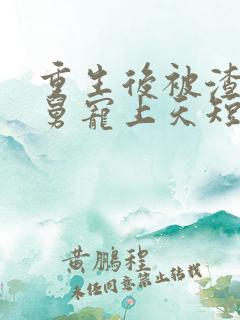 重生後被渣
舅寵上天短
黃鵬程
未任同意禁止轉載